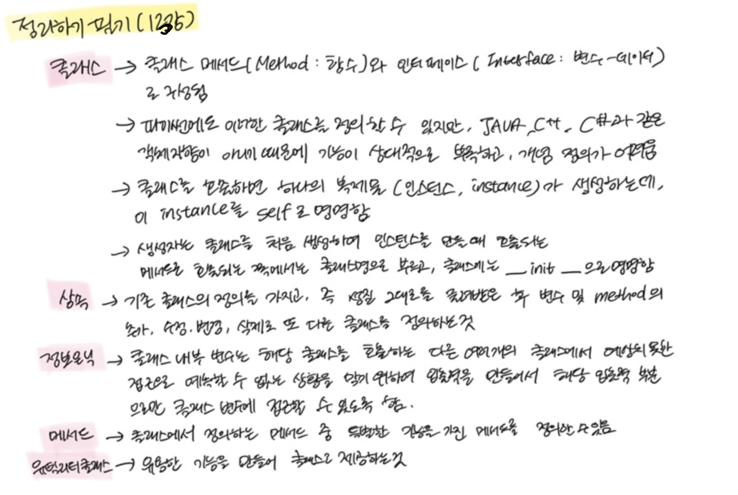 정리하기 필기 (12강)
클래스 → 클래스 메서드(Method : 함수)와 인터페이스 ( Interface : 변수-데이터)
로 구성됨
→ 파이썬에도 이러한 클래스를 정의할 수 있지만, JAVA, C++, C#과 같은
객체지향이 아니기 때문에 기능이 상대적으로 부족하고, 개념 정의가 어려움
→ 클래스를 호출하면 하나의 복제물 (인스턴스, instance)가 생성하는데,
이 instance를 self로 명명함
→ 생성자는 클래스를 처음 생성하여 인스턴스를 만들 때 호출되는
메서드로 호출되는 쪽에서는 클래스명으로 부르고, 클래스에는 __init__으로 명명함
상속 → 기존 클래스의 정의를 가지고, 즉 성질 그대로를 물려받은 후 변수 및 method의
추가, 수정·변경, 삭제로 또 다른 클래스를 정의하는 것
정보은닉 → 클래스 내부 변수는 해당 클래스를 호출하는 다른 여러개의 클래스에서 예상치 못한
접근으로 예측할 수 없는 상황을 막기 위하여 입출력을 만들어서 해당 입출력 부분
으로만 클래스 변수에 접근할 수 있도록 함.
메서드 → 클래스에서 정의하는 메서드 중 특별한 기능을 가진 메서드를 정의할 수 있음
유틸리티 클래스 → 유용한 기능을 만들어 클래스로 제공하는 것